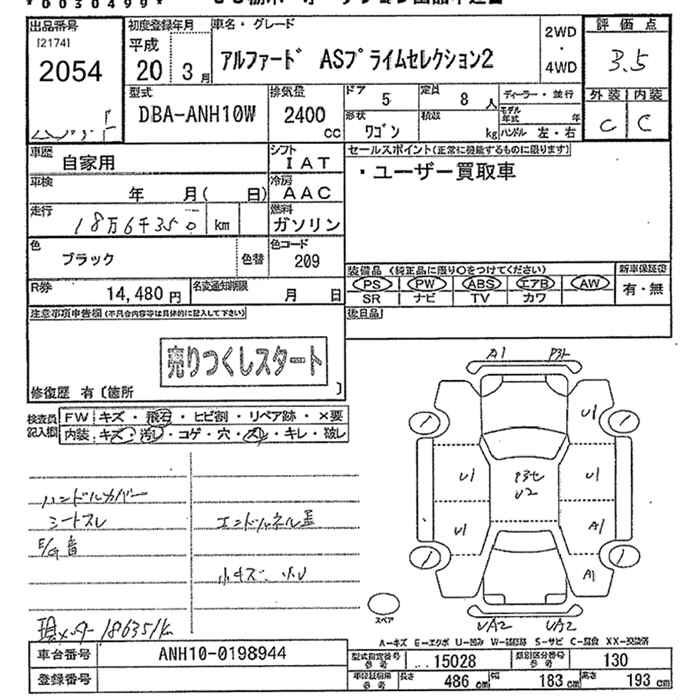 *00030499*
出品番号
[2174]
2054
初度登録年月
平成
20年 3月
車名・グレード
アルファード ASプライムセレクション2
2WD
・
4WD
評価点
3.5
外装 内装
C C
型式
DBA-ANH10W
排気量
2400
cc
ドア
5
定員
8 人
ディーラー・並行
モデル年式 年
形状
ワゴン
積数
kg
ハンドル 左・右
車歴
自家用
シフト
IAT
セールスポイント(正常に機能するものに限ります)
・ユーザー買取車
車検
年 月( 日)
冷房
AAC
走行
18万6千350 km
燃料
ガソリン
色
ブラック
色替
色コード
209
装備品 (純正品に限り○をつけてください)
新車保証書
PS PW ABS エアB AW
有・無
SR ナビ TV カワ
R券
14,480 円
名変通知期限
月 日
後日品
注意事項申告欄(不具合内容等は具体的に記入して下さい)
売りつくしスタート
修復歴 有〔箇所 〕
検査員記入欄
FW キズ・飛石・ヒビ割・リペア跡・×要
内装 キズ・汚し・コゲ・穴・スレ・キレ・破レ
ハンドルカバー
シートスレ
E/G音
エンドパネル歪
小キズ・小U
現メーター186351km
A1
U1
U1
U1
U2
U1
U1
A1
A1
UA2
UA2
スペア
A-キズ E-エクボ U-凹み W-補修跡 S-サビ C-腐食 XX-交換済
車台番号
ANH10-0198944
登録番号
型式指定番号
参考
15028
類別区分番号
参考
130
車検証記載
参考
長さ
486 cm
幅
183 cm
高さ
193 cm